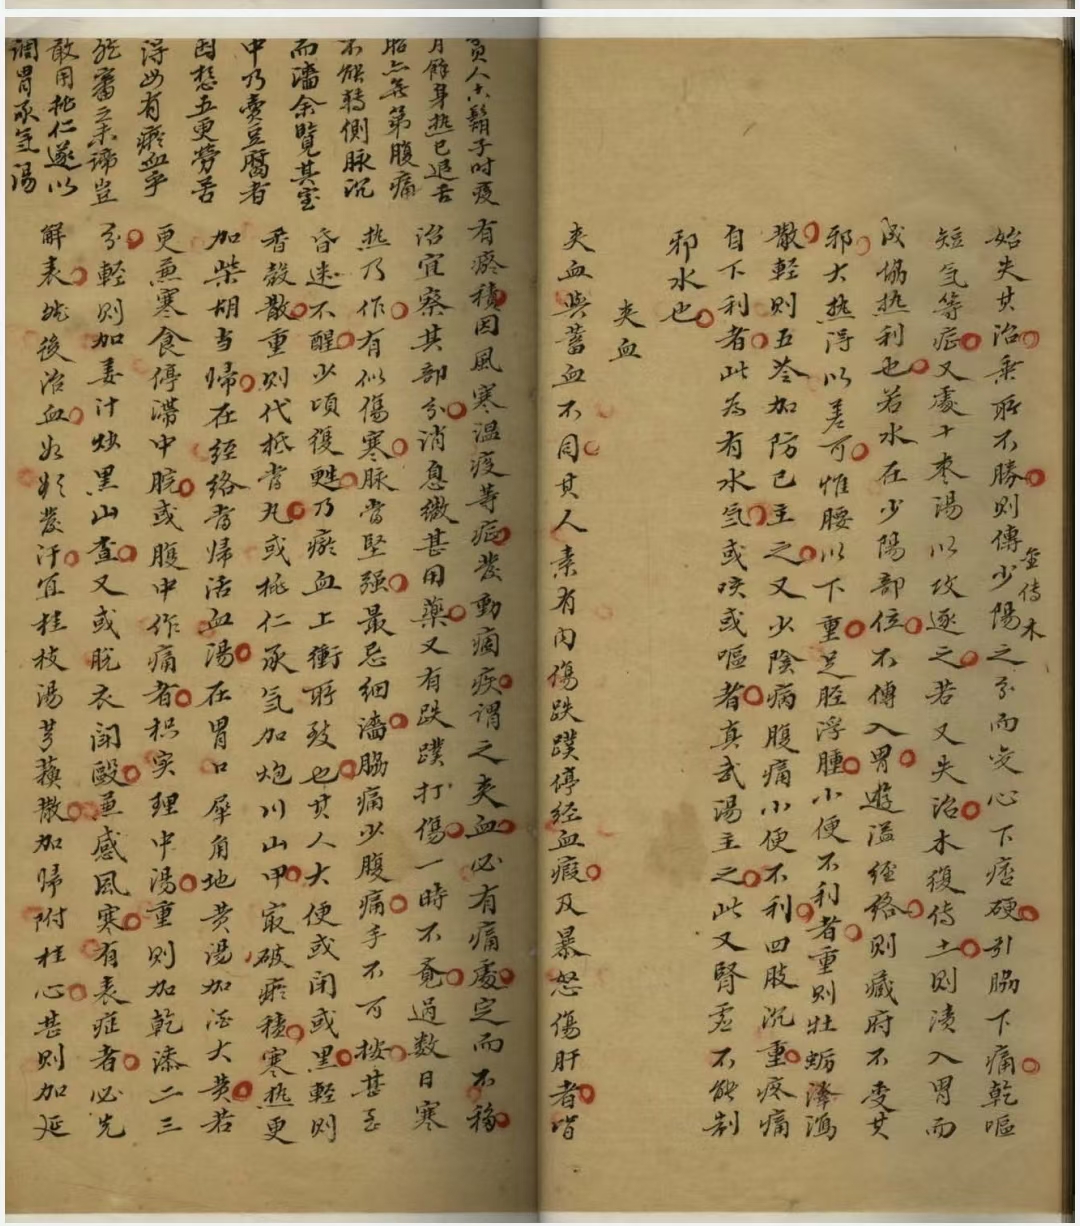 始失其治乗所不勝則傳少陽之分而受心下痞硬引脇下痛乾嘔
金傳木
短気等症又處十枣湯以攻逐之若又失治木復傳土則漬入胃而
成協热利也若水在少陽部位不傳入胃遊溢經絡則藏府不受其
邪大热得以差可惟腰以下重足胫浮腫小便不利者重則牡蛎澤瀉
散輕則五苓加防已主之又少陰病腹痛小便不利四肢沉重疼痛
自下利者此為有水気或咳或嘔者真武湯主之此又腎虚不能制
邪水也
夹血
夹血與蓄血不同其人素有内傷跌蹼停经血瘕及暴怒傷肝者皆
有瘀積因風寒温疫等症發動痼疾謂之夹血必有痛處定而不移
治宜察其部分消息微甚用藥又有跌蹼打傷一時不覔過数日寒
热乃作有似傷寒脉當堅强最忌细濇脇痛少腹痛手不可按甚至
昏迷不醒少頃復甦乃瘀血上衝所致也其人大便或闭或黑輕則
香殼散重則代抵當丸或桃仁承気加炮川山甲㝡破瘀積寒热更
加柴胡当帰在经络者帰活血湯在胃口犀角地黄湯加酒大黄若
更兼寒食停滞中脘或腹中作痛者枳实理中湯重則加乾漆二三
分輕則加姜汁炒黑山查又或脱衣闭毆兼感風寒有表症者必先
解表然後治血如斯發汗宜桂枝湯芎蘓散加帰附桂心甚則加延
員人六鬍子时疫
月餘身热已退舌
胎亦無第腹痛
不能转側脉沉
而濇余覧其室
中乃賣豆腐者
因想五更劳苦
得毋有瘀血乎
然審之未諦豈
敢用桃仁遂以
調胃承气湯